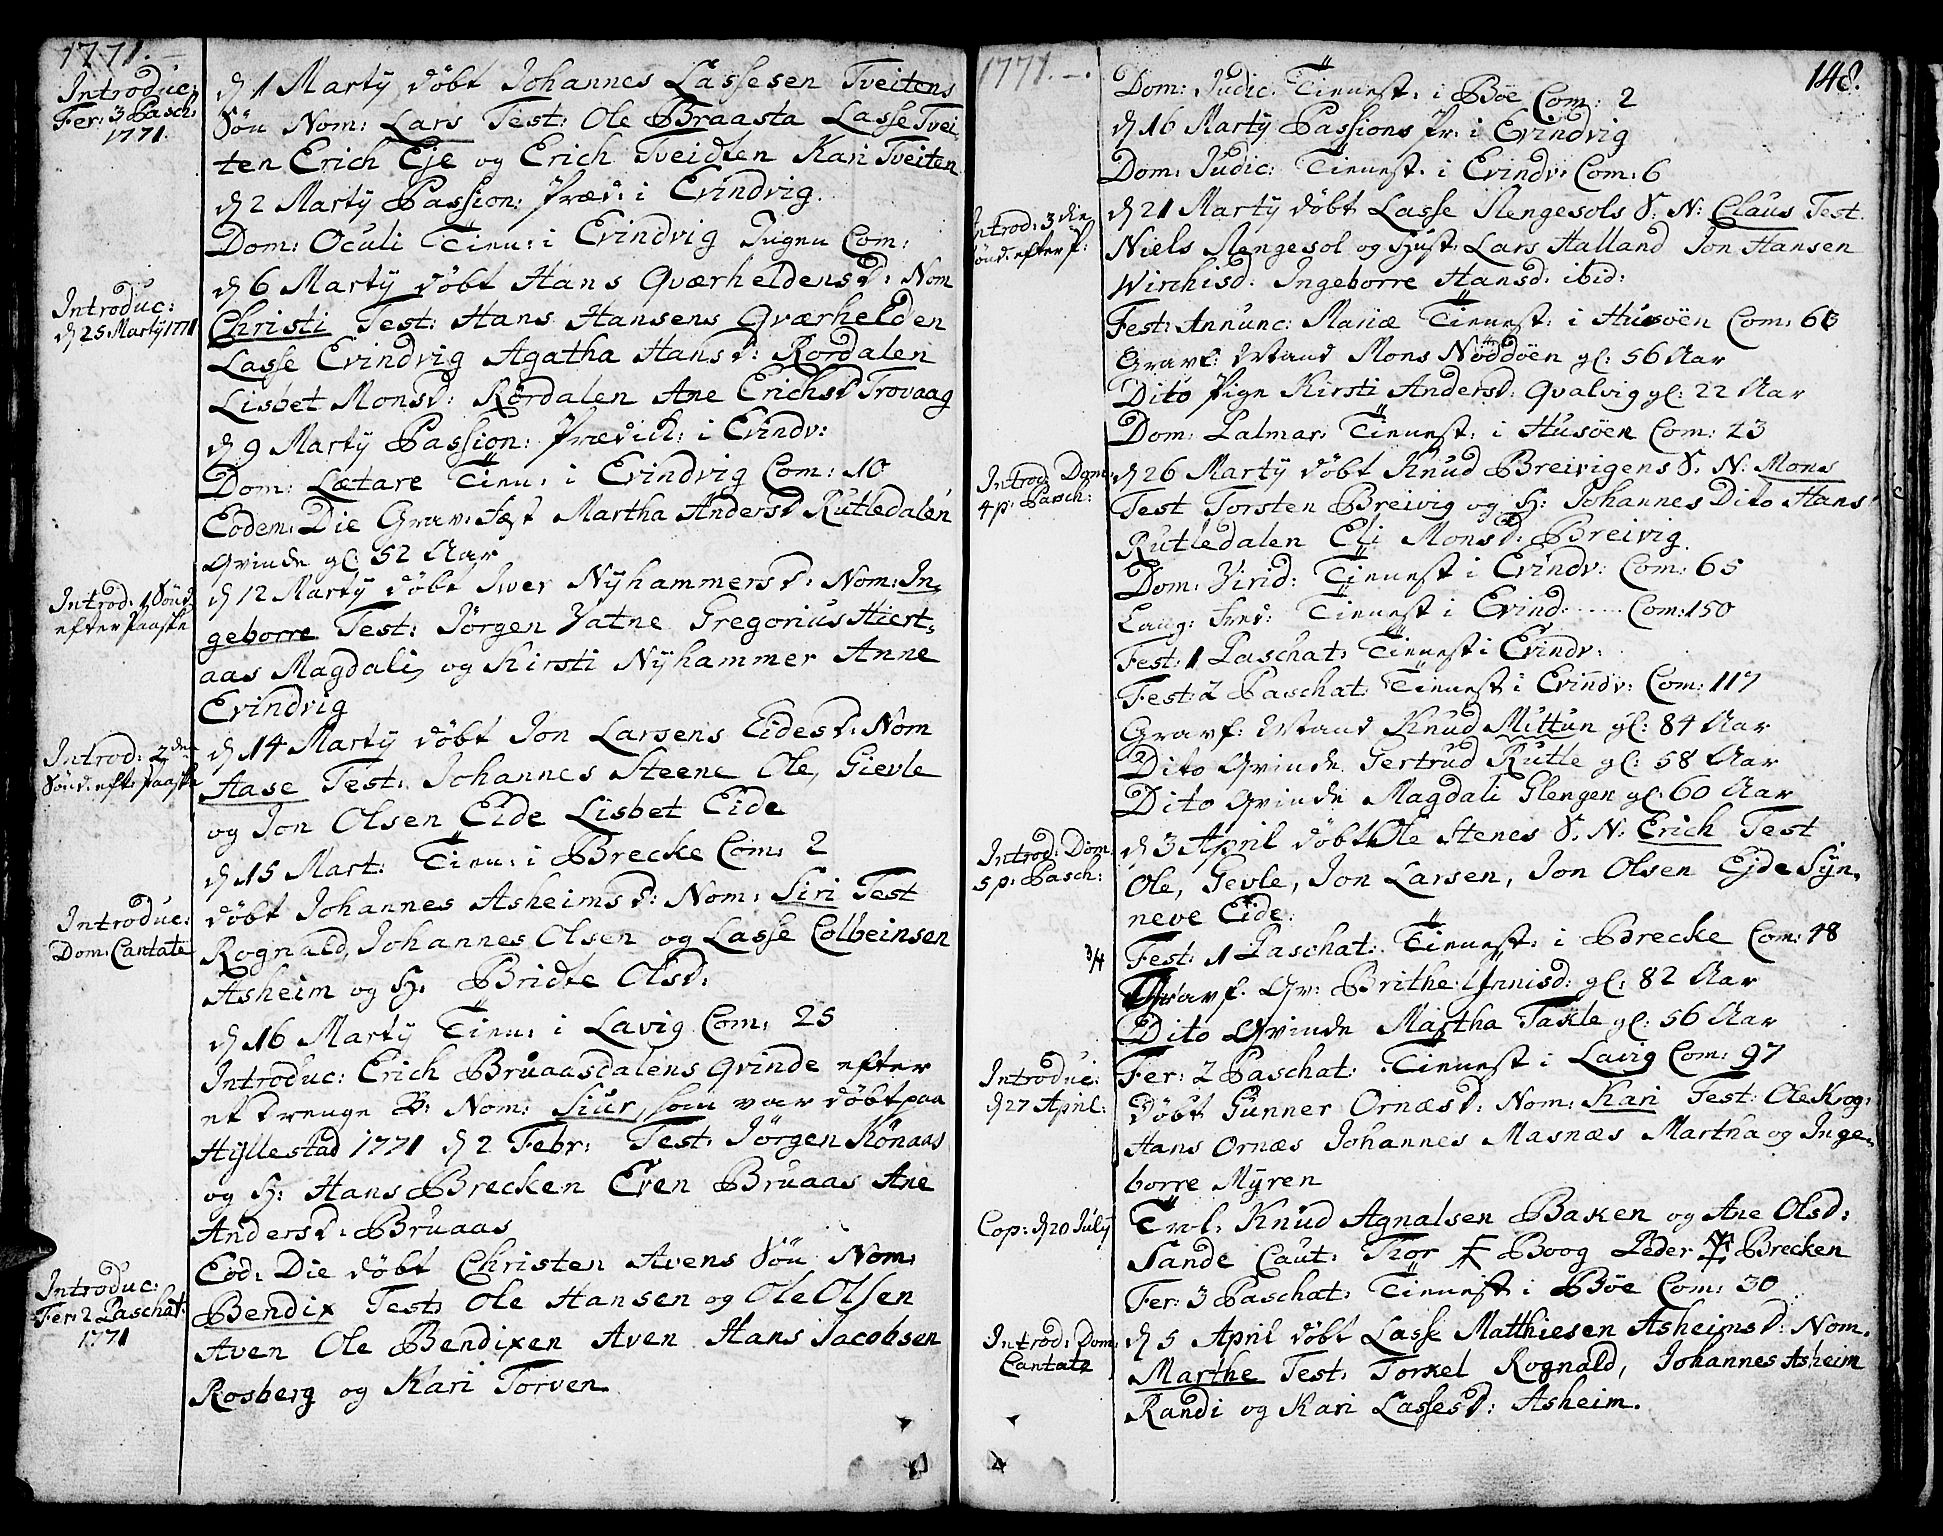 1771.
Introduc:
Fer: 3 Pasch:
1771.
d 1 Martÿ döbt Johannes Lassesen Tveitens
Sön Nom: Lars Test: Ole Braasta Lasse Tvei-
ten Erich Eje og Erich Tveidten Kari Tveiten
d 2 Martÿ Passion: Præd: i Evindvig.
Dom: Oculi Tien: i Evindvig Ingen Com:
Introduc:
d 25 Martÿ 1771
d 6 Martÿ döbt Hans Qværheldens d: Nom
Christi Test: Hans Hansens Qværhelden
Lasse Evindvig Agatha Hansd: Rordalen
Lisbet Monsd: Rördalen Ane Erichsd Trovaag
d 9 Martÿ Passion: Prædick: i Evindv:
Dom: Lætare Tien: i Evindvig Com: 10
Eodem: Die Grav: fæst Martha Andersd Rutledalen
Qvinde gl: 52 Aar
Introd: 1 Sönd
efter Paaske
d 12 Martÿ döbt Iver Nÿhammers d: Nom: In-
geborre Test: Jörgen Vatne Gregorius Hiert-
aas Magdali, og Kirsti Nÿhammer Anne
Evindvig
Introd: 2den
Sönd: eft: Paaske
d 14 Martÿ döbt Jon Larsens Eides d: Nom
Aase Test: Johannes Steene Ole, Gievle
og Jon Olsen Eide Lisbet Eide
d 15 Mart: Tien: i Brecke Com: 2
Introduc:
Dom: Cantate
döbt Johannes Asheims d: Nom: Siri Test
Rognald, Johannes Olsen og Lasse Colbeinsen
Asheim og H: Bridte Olsd:
d 16 Martÿ Tien: i Lavig Com: 25
Introduc: Erich Bruaasdalens Qvinde efter
et drenge B: Nom: Siur, som var döbt paa
Hÿllestad 1771 d 2 Febr: Test: Jörgen Rönaas
og H: Hans Brecken Even Bruaas Ane
Andersd: Bruaas
Introduc:
Fer: 2 Paschat:
1771
Eod: Die döbt Christen Avens Sön Nom:
Bendix Test: Ole Hansen og Ole Olsen
Aven Ole Bendixen Aven Hans Jacobsen
Rosberg og Kari Torven
1771.
148.
Dom: Judic: Tienest: i Böe Com: 2
d 16 Martÿ Passions Pr: i Evindvig
Dom: Judic: Tienest: i Evindv: Com: 6
Introd: 3die
Sönd: efter P:
d 21 Martÿ döbt Lasse Slengesols S: N: Claus Test:
Niels Slengesol og Hust: Lars Halland Jon Hansen
Wirchisd: Ingeborre Hansd: ibid:
Fest: Annunc: Mariæ Tienest: i Husöen Com: 60
Gravf: Mand Mons Nöddöen gl: 56 Aar
Dito Pige Kirsti Andersd: Qvalvig gl: 22 Aar
Dom: Palmar: Tienest: i Husöen Com: 23
Introd: Dom:
4 p: Pasch:
d 26 Martÿ döbt Knud Breivigens S: N: Mons
Test Torsten Breivig og H: Johannes Dito Hans
Rutledalen Eli Monsd: Breivig
Dom: Virid: Tienest i Evindv: Com: 65
Lang: Fred: Tienest i Evind: Com: 150
Fest: 1 Paschat: Tienest i Evindv:
Fest: 2 Paschat: Tienest i Evindv: Com: 117
Gravf: Mand Knud Mittun gl: 84 Aar
Dito Qvinde Gertrud Rutle gl: 58 Aar
Dito Qvinde Magdali Glengen gl: 60 Aar
Introd: Dom
5 p: Pasch:
d 3 April döbt Ole Stenes S: N: Erich Test
Ole, Gevle, Jon Larsen, Jon Olsen Ejde Sÿn-
neve Eide:
3/4
Fest: 1 Paschat: Tienest: i Brecke Com: 48
Gravf: Qv: Brithe gl: 82 Aar
Dito Qvinde Martha Takle gl: 56 Aar
Fer: 2 Paschat: Tienest i Lavig Com: 97
Introduc:
d 27 April:
döbt Gunner Ornæs d: Nom: Kari Test: Ole Krog:
Hans Ornæs Johannes Masnæs Martha og Inge-
borre Mÿren
Cop: d 20 Julÿ
Trol: Knud Agnalsen Baken og Ane Olsd:
Sande Caut: Tior Boog Peder Brecken
Fer: 3 Paschat: Tienest i Böe Com: 30
Introd: Dom:
Cantate
d 5 April döbt Lasse Matthiesen Asheims d: Nom:
Marthe Test: Torkel Rognald, Johannes Asheim
Randi og Kari Lassesd: Asheim.